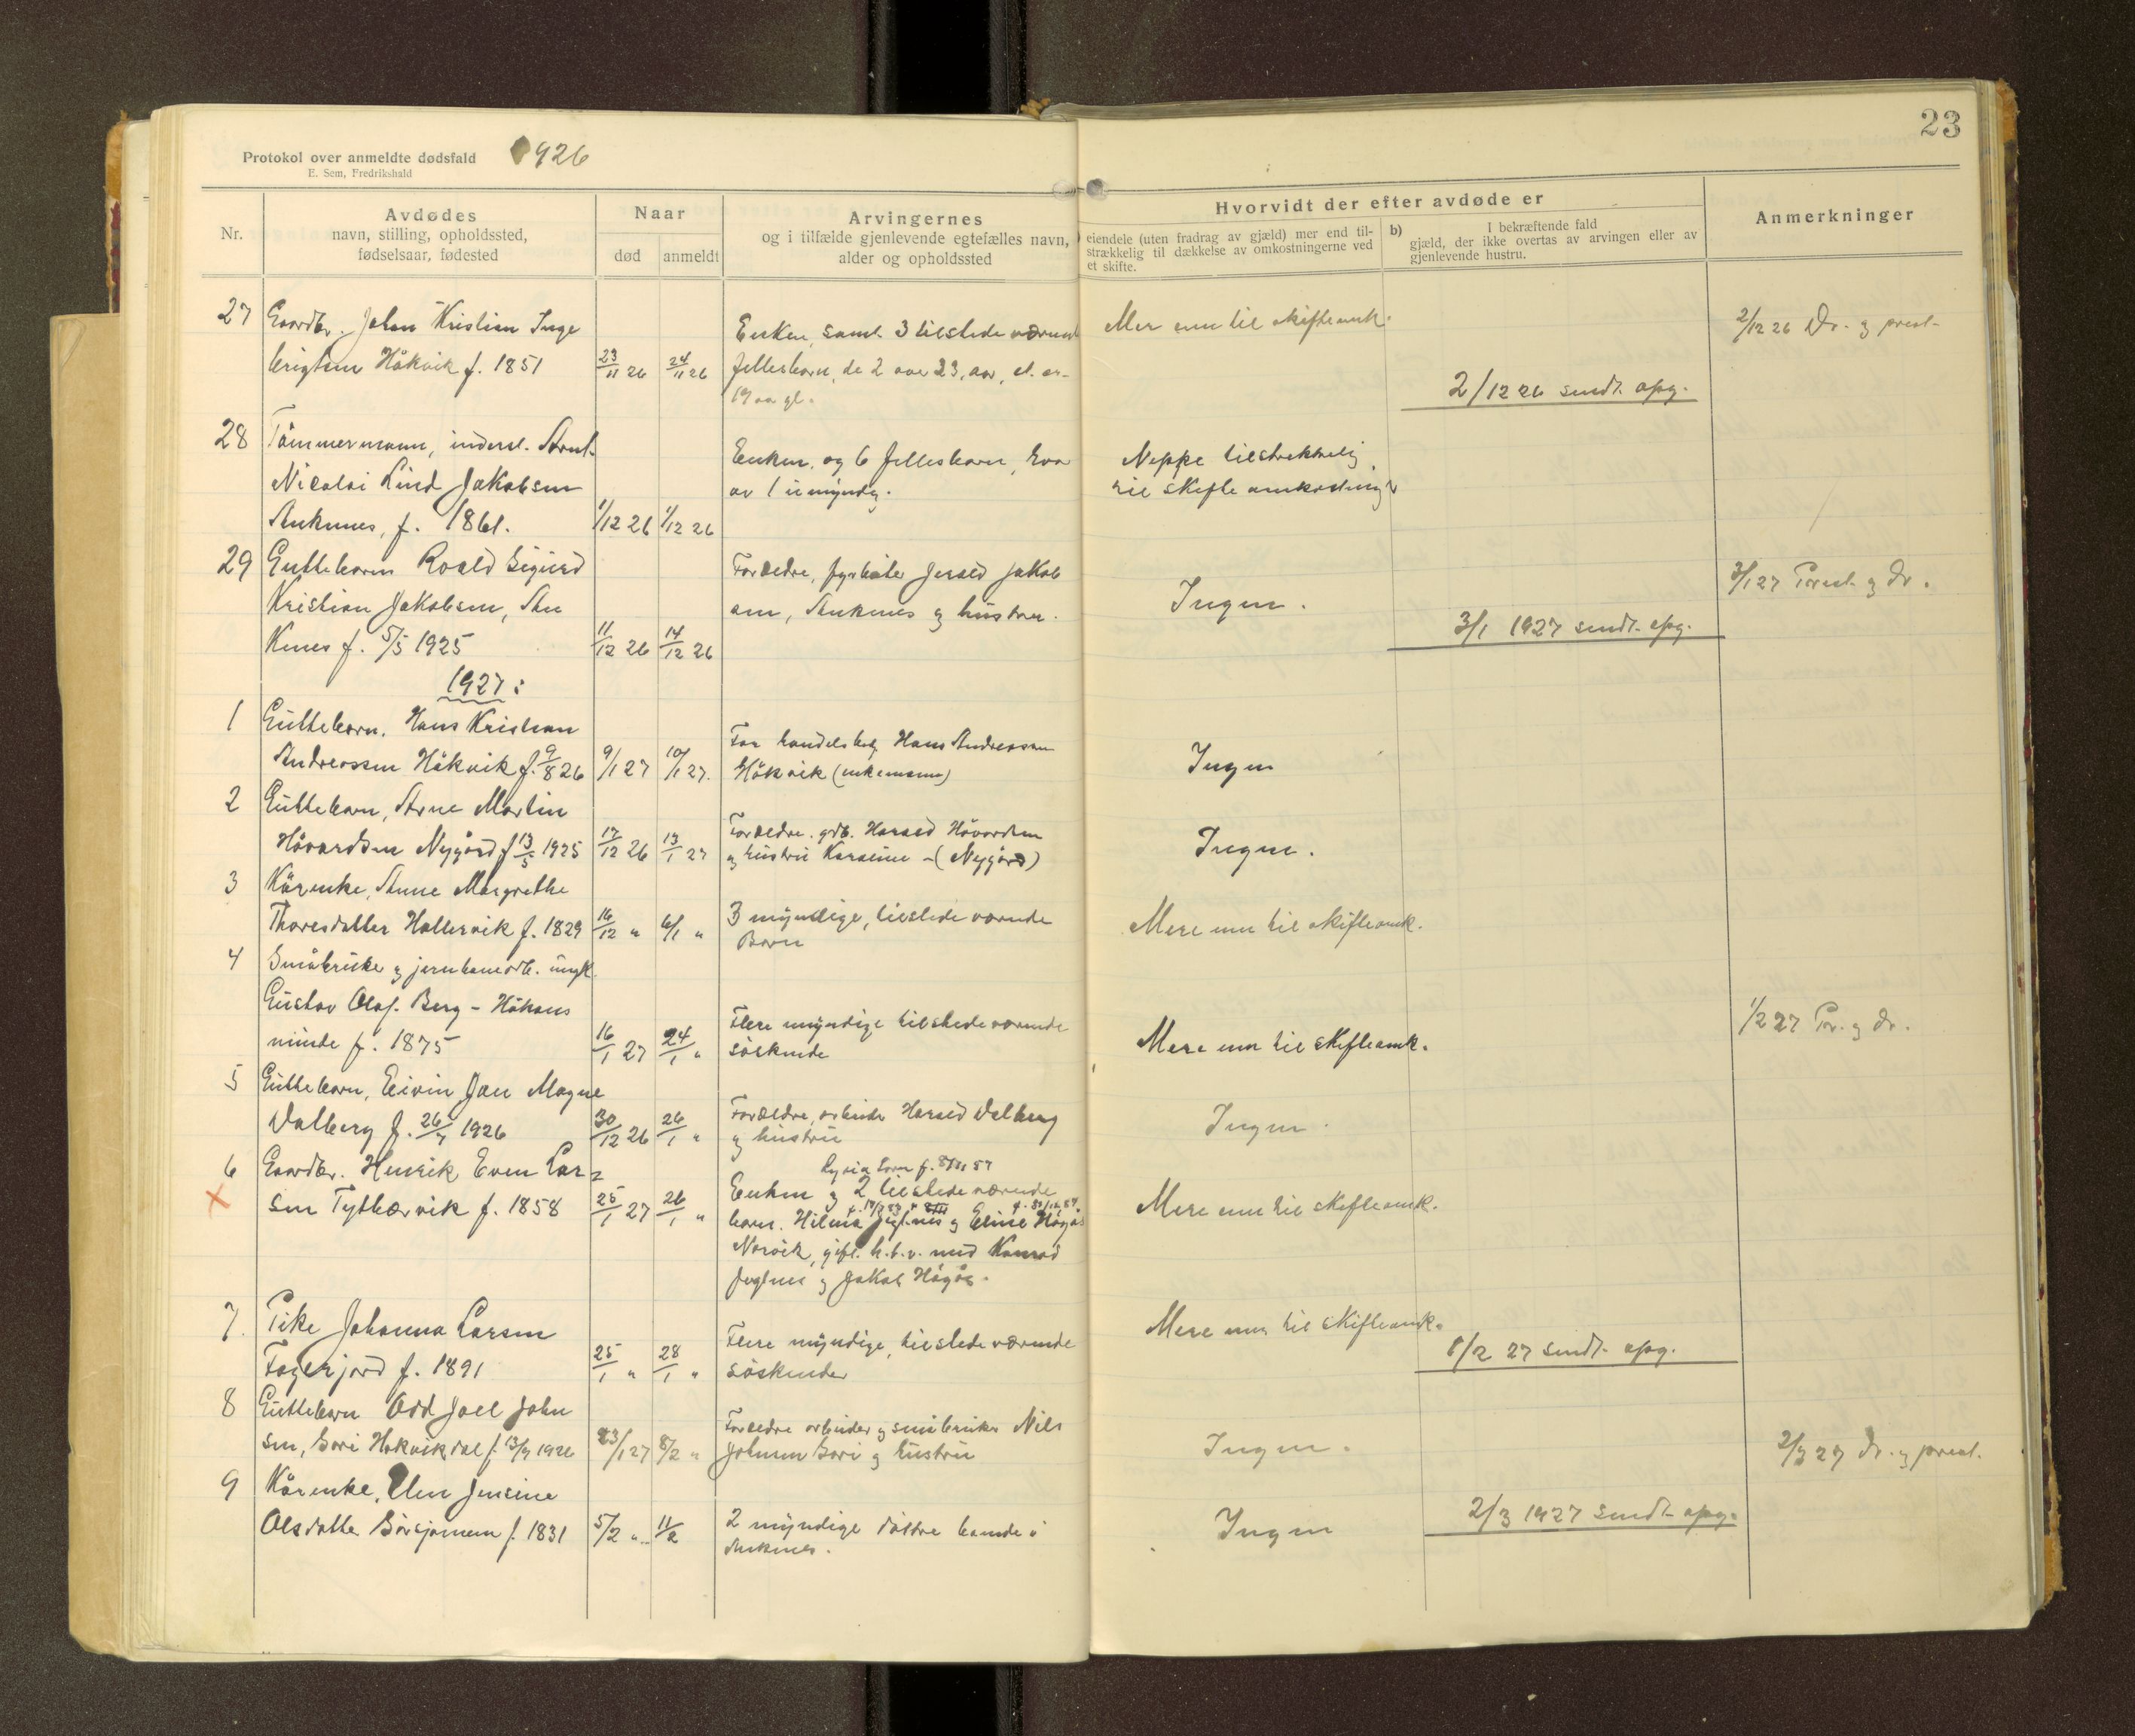 23
Protokol over anmeldte dødsfald 1926
E. Sem, Fredrikshald
Nr.
Avdødes
navn, stilling, opholdssted,
fødselsaar, fødested
Naar
død anmeldt
Arvingernes
og i tilfælde gjenlevende egtefælles navn,
alder og opholdssted
Hvorvidt der efter avdøde er
eiendele (uten fradrag av gjæld) mer end til-
strækkelig til dækkelse av omkostningerne ved
et skifte.
b) I bekræftende fald
gjæld, der ikke overtas av arvingen eller av
gjenlevende hustru.
Anmerkninger
27 Gaardbr. Johan Kristian Inge
brigtsen Håkvik f. 1851 23/11 26 24/11 26
Enken, samt 3 tilstede værend
fellesbarn, de 2 over 23 aar, et er
19 aa gl.
Mer enn til skifteomk.
2/12 26 sendt opg.
2/12 26 Dr. og prest
28 Tömmermann, inderst. Arnt
Nicolai Lind Jakobsen
Ankenes, f. 1861. 1/12 26 1/12 26
Enken, og 6 fellesbarn, hvor
av 1 umyndig.
Neppe tilstrekkelig
til skifte omkostning
29 Guttebarn Roald Sigurd
Kristian Jakobsen, An
kenes f. 5/5 1925 11/12 26 14/12 26
Foreldre, fyrböter Jakob
sen, Ankenes og hustru.
Ingen.
3/1 1927 sendt opg.
3/1 27 Prest og Dr.
1927:
1 Guttebarn, Hans Kristian
Andreassen Håkvik f. 9/8 26 9/1 27 10/1 27.
Far handelsbet Hans Andreassen
Håkvik (enkemann)
Ingen
2 Guttebarn, Arne Martin
Håvardsen Nygård f 13/5 1925 17/12 26 13/1 27
Foreldre. gdb. Harald Håvardsen
og hustru (Nygård)
Ingen.
3 Kårenke, Anne Margrethe
Thoresdatter Hallervik f. 1829 16/12 " 6/1 "
3 myndige, tilstede værende
Barn
Mere enn til skifteomk.
4 Småbruker og jernbanearb. ungk.
Gustav Olaf Berg - Håkons
minde f. 1875 16/1 27 24/1 "
Flere myndige tilstedeværende
söskende
Mere enn til skifteomk.
1/2 27 Pr. og dr.
5 Guttebarn, Eivin Jan Magne
Dalberg f. 26/7 1926 30/12 26 26/1 "
Foreldre, arbeider Harald Dalberg
og hustru
Ingen.
6 Gaardbr. Henrik Even Lar=
sen Tytbærvik f. 1858 25/1 27 26/1 "
Enken og 2 tilstede værende
barn. Hilma og Eline Högås
Narvik, gift h.h.v. med Konrad
og Jakob Högås.
Mere enn til skifteomk.
7. Pike Johanna Larsen
Fagerjord f. 1891 25/1 " 28/1 "
Flere myndige, tilstede værende
söskender
Mere enn til skifteomk.
1/2 27 sendt opg.
8 Guttebarn Odd Joel John
sen, Sori Håkvikdal 23/1 27 8/2 "
Foreldre arbeider og småbruker Nils
Johnsen Sori og hustru
Ingen.
2/3 27 Dr. og prest.
9 Kårenke, Elen Jensine
Olsdatter f. 1831 5/2 " 11/2
2 myndige döttre boende i
Ankenes.
Ingen
2/3 1927 sendt opg.